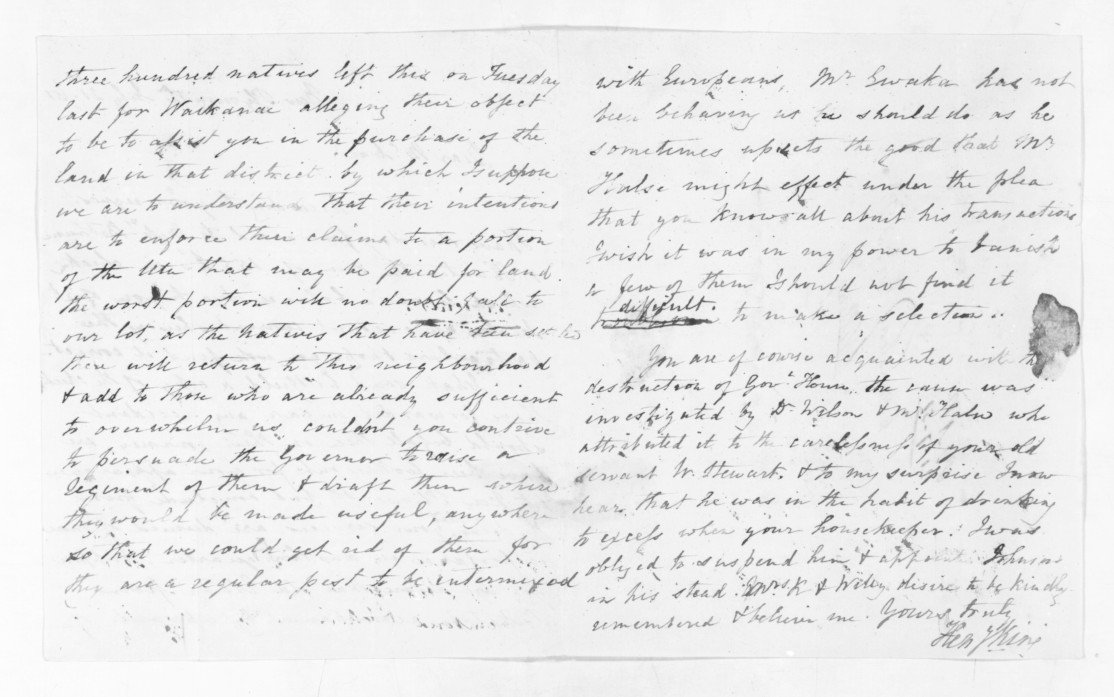 Three hundred natives left this on Tuesday
last for Waikanae alleging their object
to be to assist you in the purchase of the
land in that district by which I suppose
we are to understand that their intentions
are to enforce their claims to a portion
of the Utu that may be paid for land.
the worst portion will no doubt fall to
our lot, as the Natives that have been
there will return to this neighbourhood
& add to those who are already sufficient
to overwhelm us, couldn't you contrive
to persuade the Governor to raise a
regiment of them & draft them where
they would be made useful, anywhere
so that we could get rid of them for
they are a regular pest to be intermixed
with Europeans, Mr Ewaka has not
been behaving as he should do as he
sometimes upsets the good that Mr
Halse might effect under the plea
that you know all about his transactions
I wish it was in my power to banish
a few of them I should not find it
difficult. to make a selection..
You are of course acquainted with the
destruction of Govt House. the cause was
investigated by Dr Wilson & Mr Halse who
attributed it to the carelessness of your old
servant W. Stewart. & to my surprise I now
hear that he was in the habit of drinking
to excess when your housekeeper. I was
obliged to suspend him & appoint Johnson
in his stead. Mrs K & Willy desire to be kindly
remembered & believe me Yours truly
Heny King